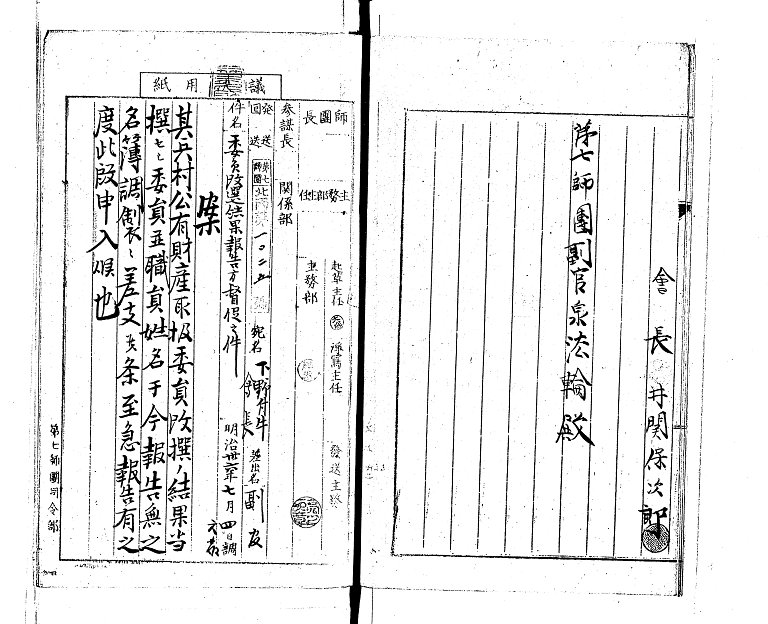 會長 井関保次郎
第七師團副官泉法輪殿
議用紙
師團長
参謀長
主務部主任
関係部
起草主任
浄寫主任
主務部
發送主務
発送
回送
第七師團
一〇二五
宛名 下野青年會長
差出名 副官
明治卅六年七月四日調
件名 委員改選結果報告方督促之件
案
其兵村公有財産取扱委員改撰ノ結果当
撰セシ委員並職員姓名于今報告無之
名簿調製ニ差支候条至急報告有之
度此段申入候也
第七師團司令部